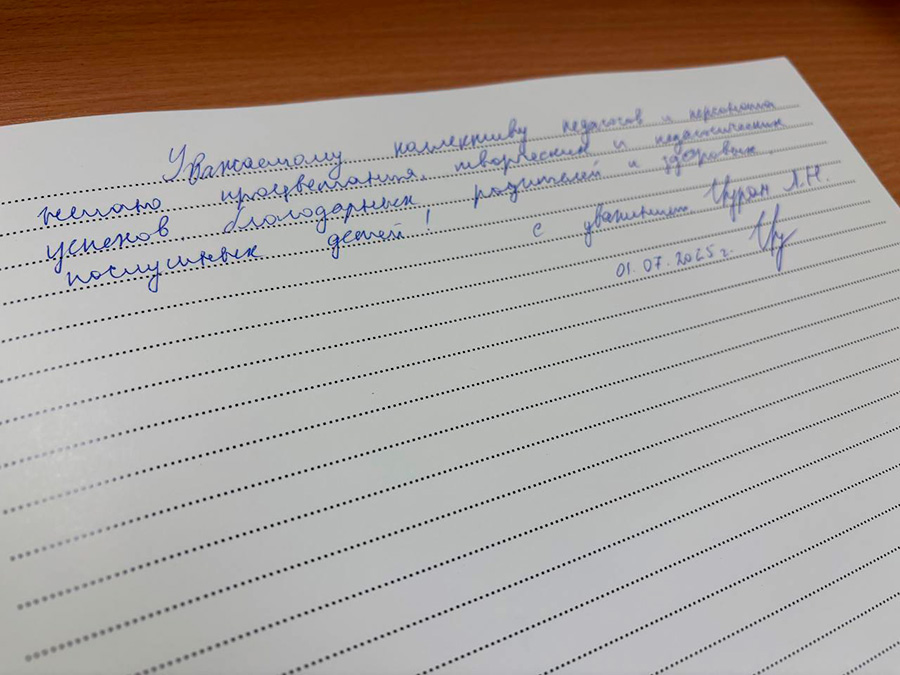 Уважаемому коллективу педагогов и персонала
желаю процветания, творческих и педагогических
успехов благодарных родителей и здоровых,
послушных детей!
с уважением Л.Н.
01.07.2025 г.